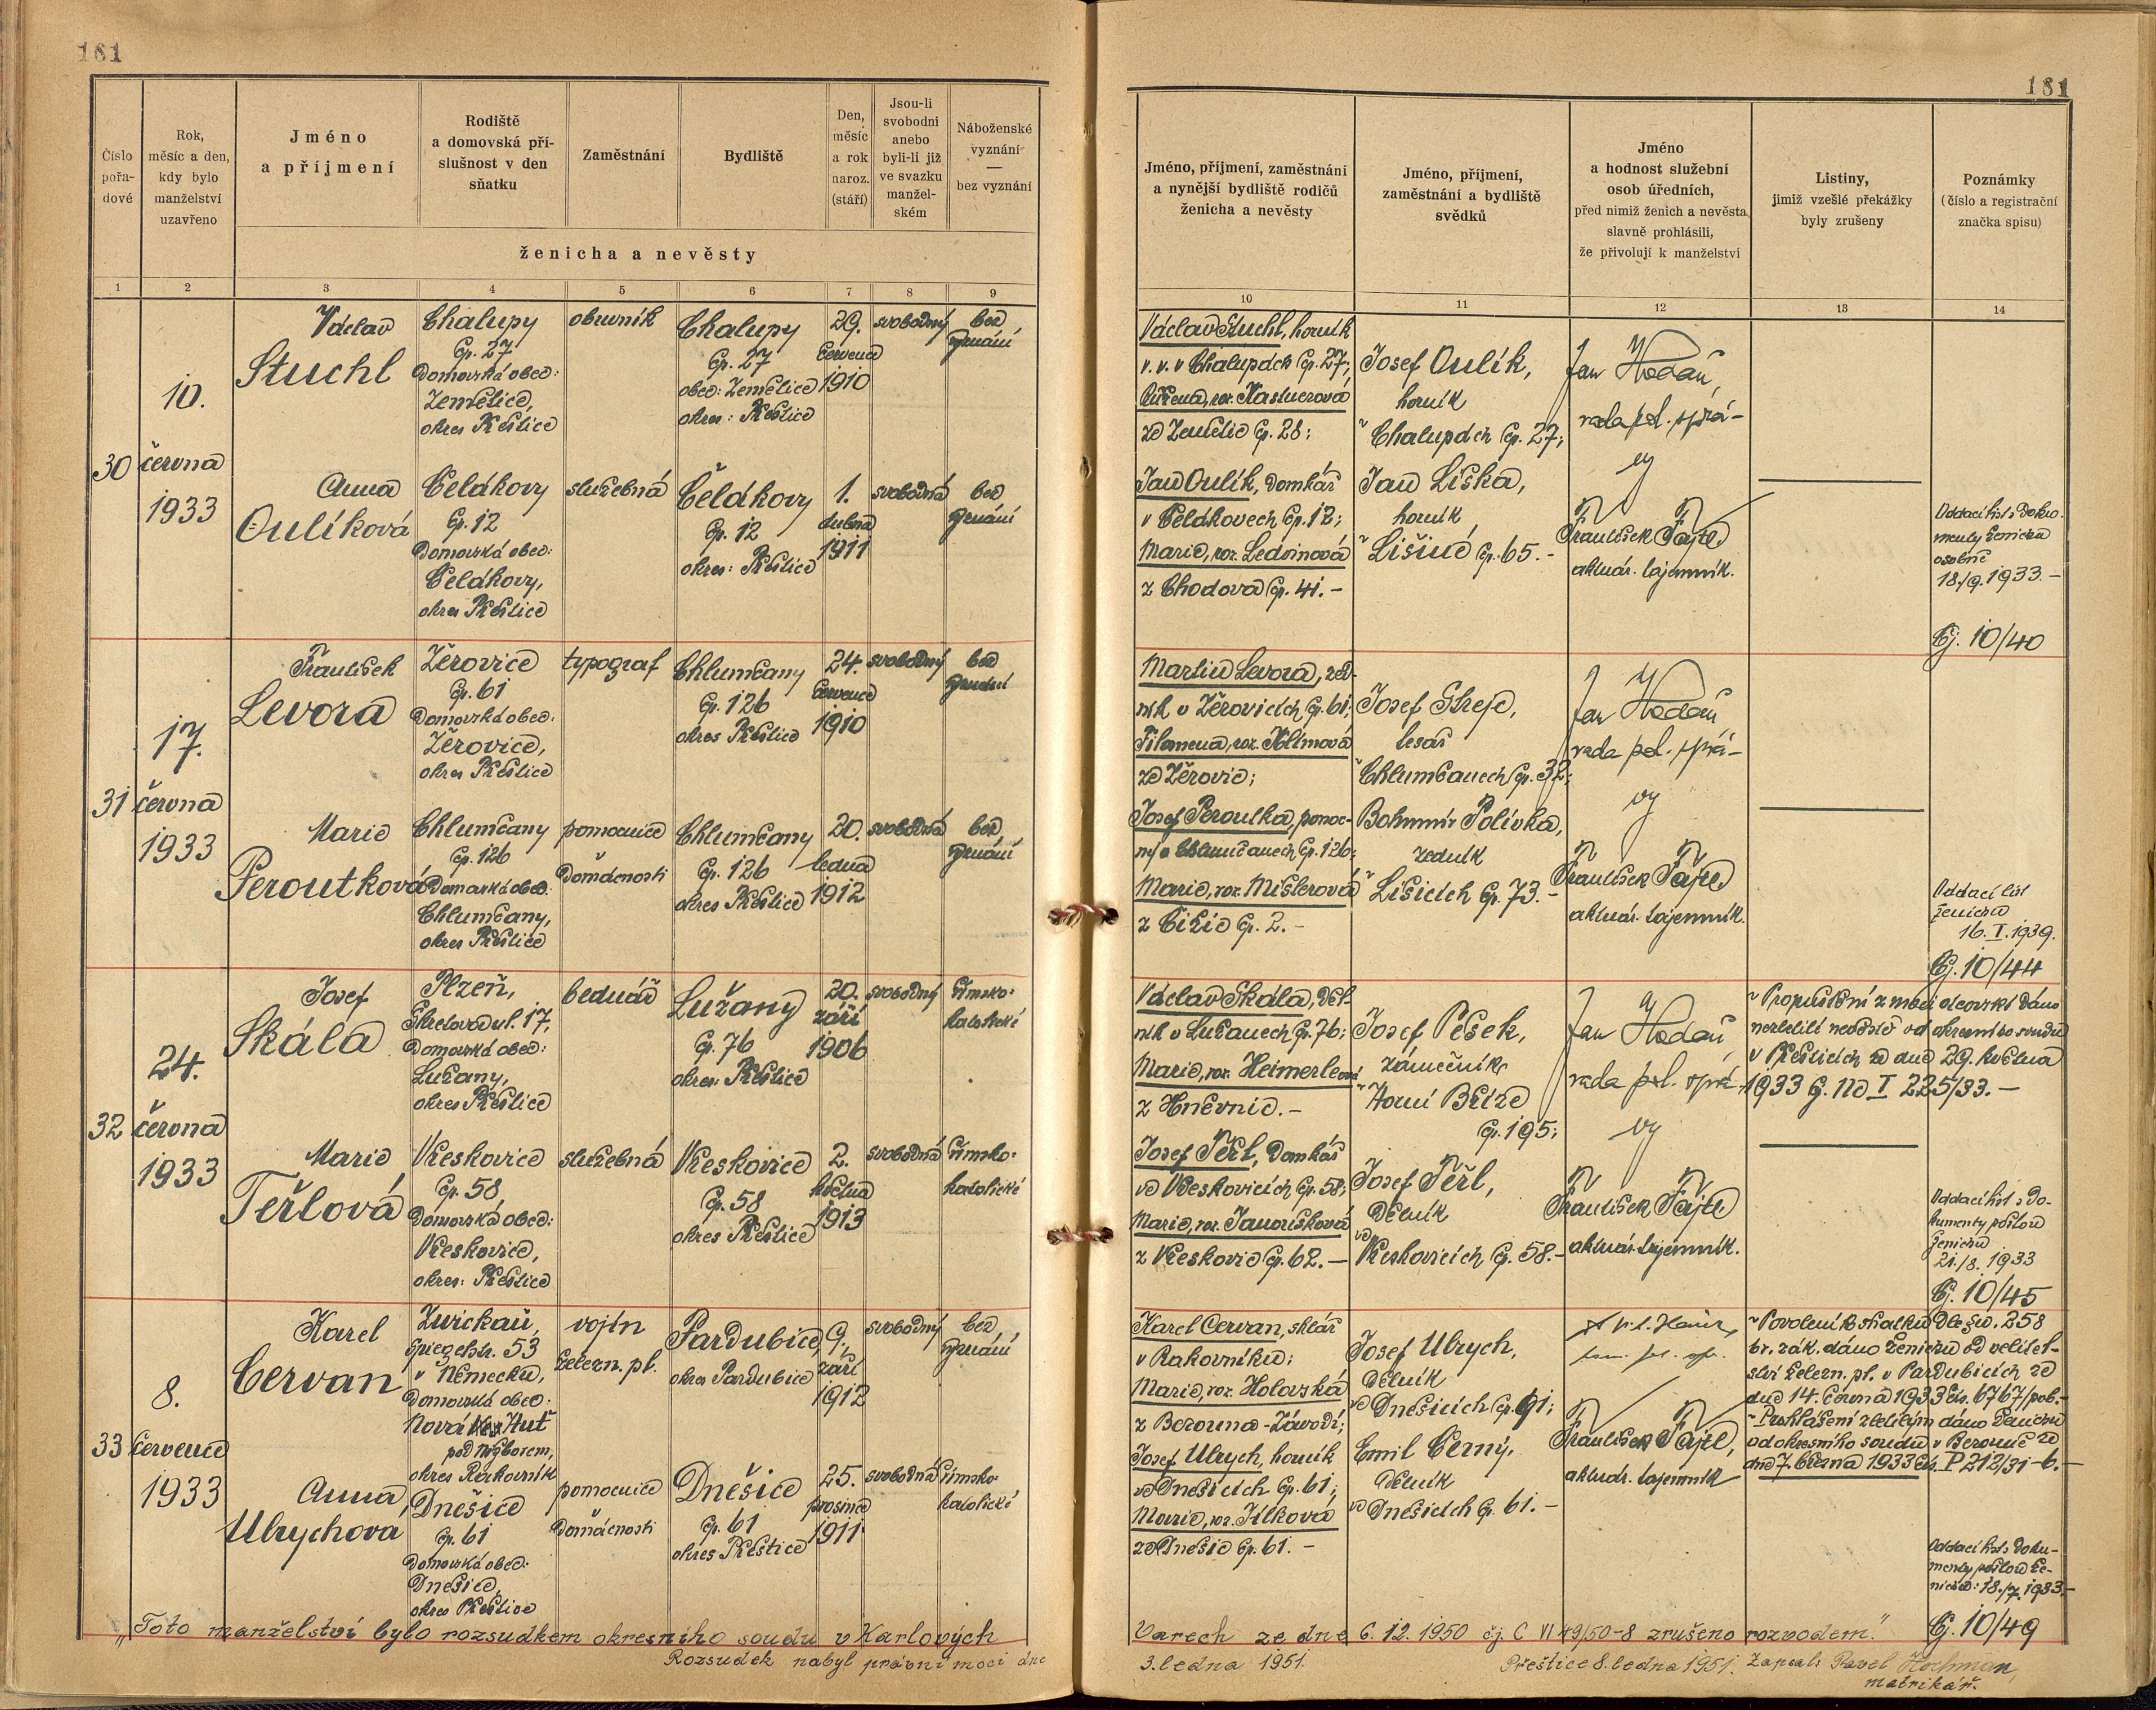 181
181
Číslo pořadové
Rok, měsíc a den, kdy bylo manželství uzavřeno
Jméno a příjmení
Rodiště a domovská příslušnost v den sňatku
Zaměstnání
Bydliště
Den, měsíc a rok naroz. (stáří)
Jsou-li svobodni anebo byli-li již ve svazku manželském
Náboženské vyznání — bez vyznání
ženicha a nevěsty
Jméno, příjmení, zaměstnání a nynější bydliště rodičů ženicha a nevěsty
Jméno, příjmení, zaměstnání a bydliště svědků
Jméno a hodnost služební osob úředních, před nimiž ženich a nevěsta slavně prohlásili, že přivolují k manželství
Listiny, jimiž vzešlé překážky byly zrušeny
Poznámky (číslo a registrační značka spisu)
1 2 3 4 5 6 7 8 9
10 11 12 13 14
30
10. června 1933
Václav Stuchl
Chalupy
Čp. 27
Domovská obec:
Zemětice,
okres Přeštice
obuvník
Chalupy
Čp. 27
obec: Zemětice
okres: Přeštice
29. července 1910
svobodný
bez vyznání
Anna Oulíková
Čelákovy
Čp. 12
Domovská obec:
Čelákovy,
okres Přeštice
služebná
Čelákovy
Čp. 12
okres: Přeštice
1. dubna 1911
svobodná
bez vyznání
Václav Stuchl, horník
v. v. v Chalupách čp. 27;
Růžena, roz. Kastnerová
ze Zemětic čp. 28;
Jan Oulík, domkář
v Čelákovech čp. 12;
Marie, roz. Ledvinová
z Chodova čp. 41.-
Josef Oulík,
horník
v Chalupách čp. 27;
Jan Liška,
horník
v Lišině čp. 65.-
Jan Hodaň,
rada pol. sprá-
vy
František Fajtl
aktuár. tajemník.
Oddací list s doku-
menty ženichu
osobně
18./9. 1933.-
Čj. 10/40
31
17. června 1933
František Levora
Žerovice
Čp. 61
Domovská obec:
Žerovice,
okres Přeštice
typograf
Chlumčany
Čp. 126
okres Přeštice
24. července 1910
svobodný
bez vyznání
Marie Peroutková
Chlumčany
Čp. 126
Domovská obec:
Chlumčany,
okres Přeštice
pomocnice v domácnosti
Chlumčany
Čp. 126
okres Přeštice
20. ledna 1912
svobodná
bez vyznání
Martin Levora, zed-
ník v Žerovicích čp. 61;
Filomena, roz. Klímová
ze Žerovic;
Josef Peroutka, pomoc-
ný v Chlumčanech čp. 126;
Marie, roz. Mislerová
z Čižic čp. 2.-
Josef Strejc,
tesař
v Chlumčanech čp. 32;
Bohumír Polívka,
zedník
v Lišicích čp. 73.-
Jan Hodaň,
rada pol. sprá-
vy
František Fajtl
aktuár. tajemník.
Oddací list
ženichu
16. I. 1939.
Čj. 10/44
32
24. června 1933
Josef Skála
Plzeň,
Škretova ul. 17,
Domovská obec:
Lužany,
okres Přeštice
bednář
Lužany
Čp. 76
okres: Přeštice
20. září 1906
svobodný
římsko-katolické
Marie Teřlová
Vřeskovice
Čp. 58,
Domovská obec:
Vřeskovice,
okres: Přeštice
služebná
Vřeskovice
Čp. 58
okres Přeštice
2. května 1913
svobodná
římsko-katolické
Václav Skála, děl-
ník v Lužanech čp. 76;
Marie, roz. Heimerlová
z Hněvnic.-
Josef Teřl, domkář
ve Vřeskovicích čp. 58;
Marie, roz. Janoušková
z Vřeskovic čp. 62.-
Josef Pešek,
zámečník
v Horní Bříze
čp. 195;
Josef Teřl,
dělník
ve Vřeskovicích čp. 58.-
Jan Hodaň,
rada pol. sprá-
vy
František Fajtl
aktuár. tajemník.
Propuštění z moci otcovské dáno
nezletilé nevěstě od okresního soudu
v Přešticích ze dne 29. května
1933 Č. Nc I 225/33.-
Oddací list s do-
kumenty poštou
ženichu
21./8. 1933
Čj. 10/45
33
8. července 1933
Karel Cervan
Zwickau,
Spiegelstr. 53
v Německu,
Domovská obec:
Nová Huť
pod Nižborem,
okres Rakovník
vojín železn. pl.
Pardubice,
okres Pardubice
9. září 1912
svobodný
bez vyznání
Anna Ulrychova
Dnešice
čp. 61
Domovská obec:
Dnešice,
okres Přeštice
pomocnice v domácnosti
Dnešice
čp. 61
okres Přeštice
25. prosince 1911
svobodná
římsko-katolické
Karel Cervan, sklář
v Rakovníku;
Marie, roz. Holavská
z Berouna-Závodí;
Josef Ulrych, horník
ve Dnešicích čp. 61;
Marie, roz. Jílková
ze Dnešic čp. 61.-
Josef Ulrych,
dělník
ve Dnešicích čp. 91;
Emil Černý,
dělník
ve Dnešicích čp. 61.-
František Fajtl,
aktuár. tajemník
Povolení k sňatku dle §u. 258
br. zák. dáno ženichu od velitel-
ství železn. pl. v Pardubicích ze
dne 14. června 1933 čís. 6767/pob.-
Prohlášení zletilým dáno ženichu
od okresního soudu v Berouně ze
dne 7. března 1933 čís. P 212/31-6.-
Oddací list s doku-
menty poštou že-
nichu: 18./7. 1933.-
Čj. 10/49
„Toto manželství bylo rozsudkem okresního soudu v Karlových
Varech ze dne 6. 12. 1950 č.j. C VI 49/50-8 zrušeno rozvodem."
Rozsudek nabyl právní moci dne
3. ledna 1951.
Přeštice 8. ledna 1951. Zapsal: Pavel Hochman,
matrikář.